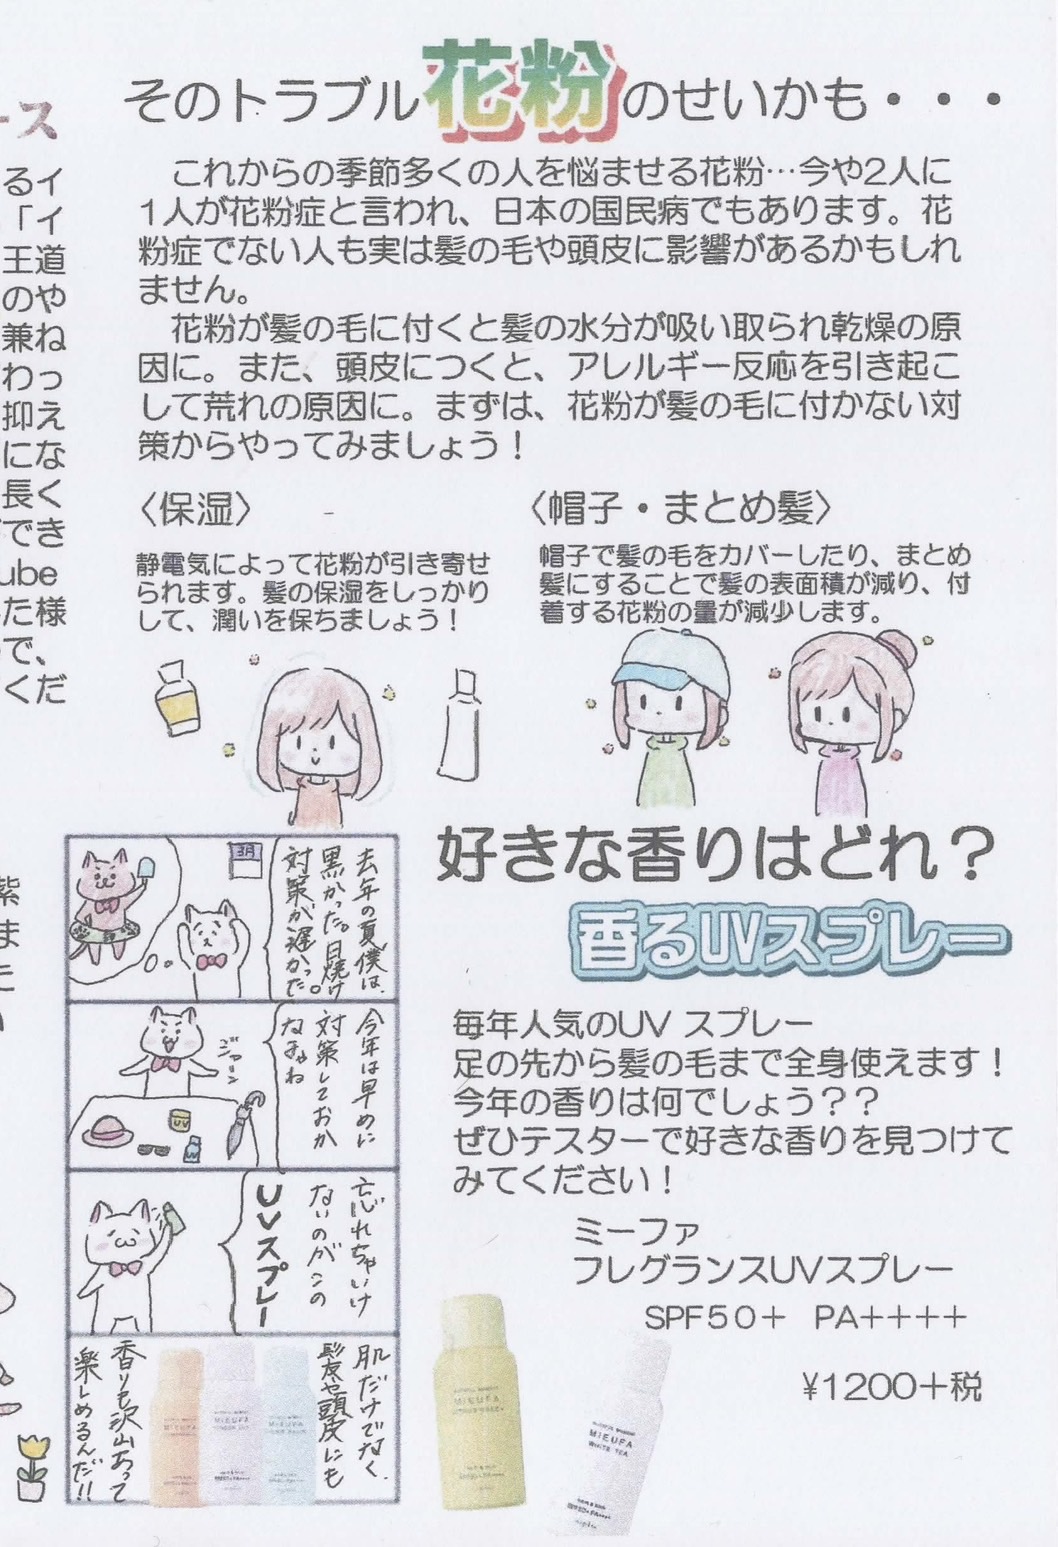 そのトラブル花粉のせいかも・・・
　これからの季節多くの人を悩ませる花粉…今や2人に
1人が花粉症と言われ、日本の国民病でもあります。花
粉症でない人も実は髪の毛や頭皮に影響があるかもしれ
ません。
　花粉が髪の毛に付くと髪の水分が吸い取られ乾燥の原
因に。また、頭皮につくと、アレルギー反応を引き起こ
して荒れの原因に。まずは、花粉が髪の毛に付かない対
策からやってみましょう！
〈保湿〉
静電気によって花粉が引き寄せ
られます。髪の保湿をしっかり
して、潤いを保ちましょう！
〈帽子・まとめ髪〉
帽子で髪の毛をカバーしたり、まとめ
髪にすることで髪の表面積が減り、付
着する花粉の量が減少します。
ース
るイ
「イ
王道
のや
兼ね
わっ
抑え
にな
長く
でき
ube
た様
で、
くだ
3月
去年の夏、僕は
黒かった。日焼け
対策が遅かった。
今年は早めに
対策しておか
なきゃね
ジャーン
UV
忘れちゃいけ
ないのがこの
UVスプレー
肌だけでなく、
髪や頭皮にも
香りも沢山あって
楽しめるんだ!!
MIEUFA
MIEUFA
MIEUFA
好きな香りはどれ？
香るUVスプレー
毎年人気のUV スプレー
足の先から髪の毛まで全身使えます！
今年の香りは何でしょう？？
ぜひテスターで好きな香りを見つけて
みてください！
ミーファ
フレグランスUVスプレー
SPF50＋　PA＋＋＋＋
¥1200＋税
MIEUFA
MIEUFA
WHITE TEA